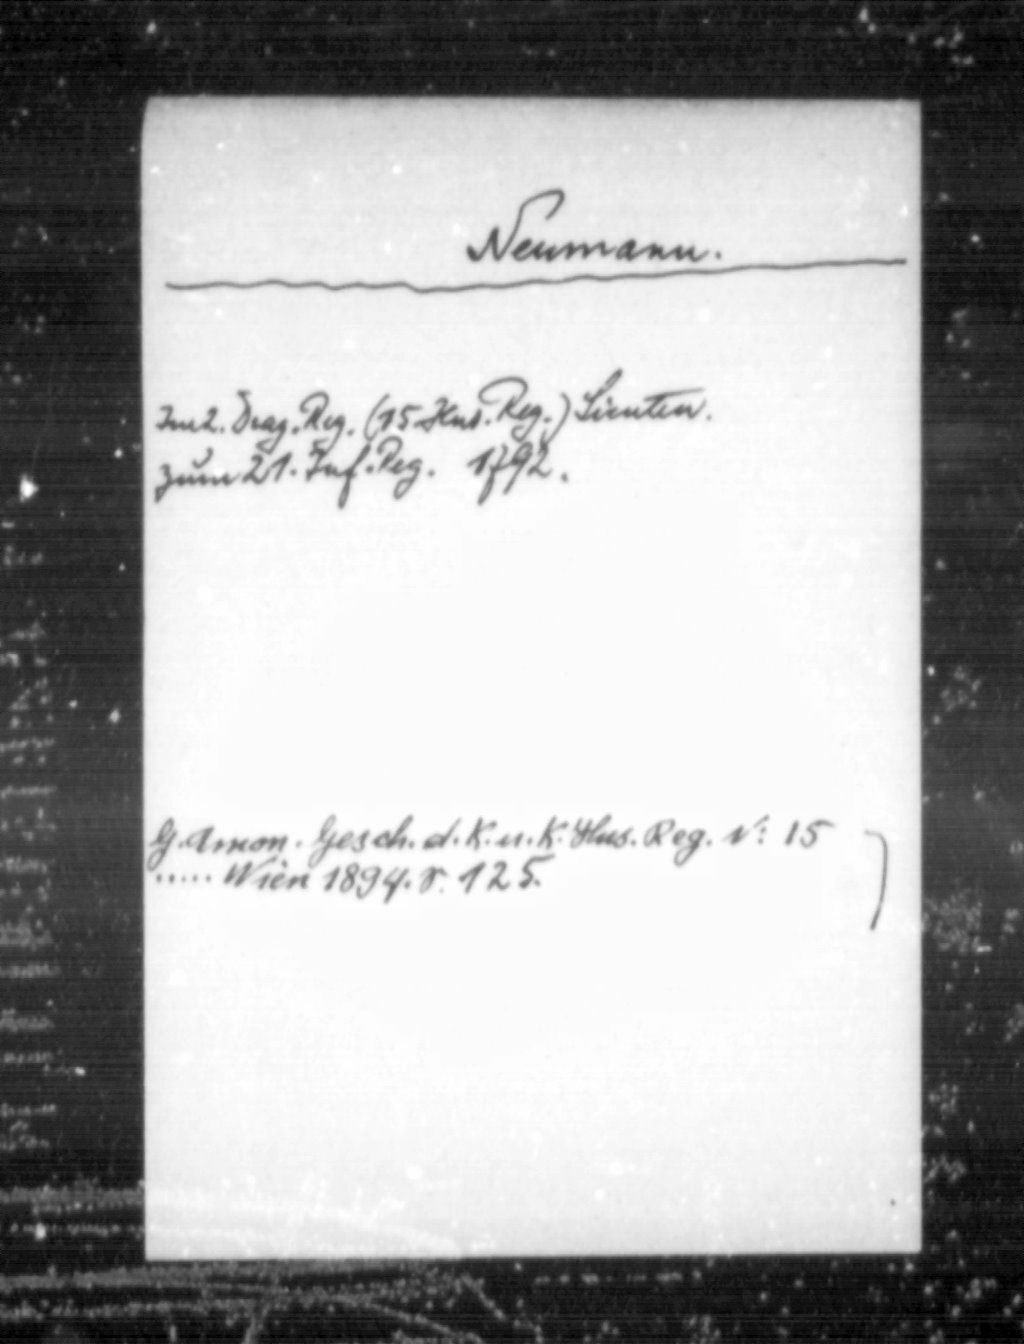 Neumann.
Im 2. Drag. Reg. (15 Hus. Reg.) Lieuten.
zum 21. Inf. Reg. 1792.
G. Amon. Gesch. d. K. u. K. Hus. Reg. N: 15
..... Wien 1894. S. 125.